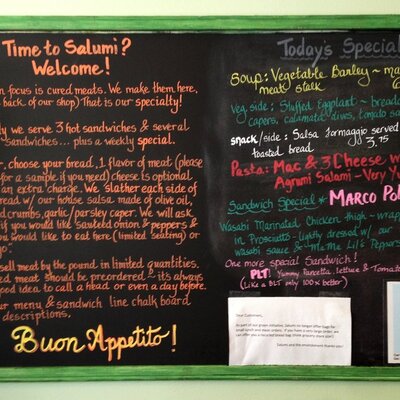 Time to Salumi?
Welcome!
n focus is cured meats. We make them here,
back of our shop) That is our specialty!
ly we serve 3 hot sandwiches & several
sandwiches... plus a weekly special.
r, choose your bread, 1 flavor of meat (please
for a sample if you need) cheese is optional
an extra charge. We slather each side of
bread w/ our house salsa made of olive oil,
d crumbs, garlic/parsley caper. We will ask
if you would like sauteed onion & peppers &
you would like to eat here (limited seating) or
go.
sell meat by the pound in limited quantities.
ed meat should be preordered - its always
ood idea to call a head or even a day before.
ur menu & sandwich line chalk board
descriptions.
Buon Appetito!
Today's Special
Soup: Vegetable Barley ~ ma
meat stock
Veg. side: Stuffed Eggplant ~ bread
capers, calamata olives, tomato
snack/side: Salsa Formaggio served
toasted bread 3.75
Pasta: Mac & 3 Cheese w
Agrumi Salami - Very Yu
Sandwich Special * MARCO POL
Wasabi Marinated Chicken thigh ~ wrap
in Prosciutto - lightly dressed w/ our
wasabi sauce & Mama Lil's Peppers
One more special Sandwich!
PLT! Yummy Pancetta, lettuce & Tomato
(Like a BLT only 100x better)
Dear Customers,
As part of our green initiative, Salumi no longer offer bags for
small lunch and meat orders. If you have a very large order, we
can offer you a recycled brown bag (think grocery store).
Salumi and the environment thanks you!